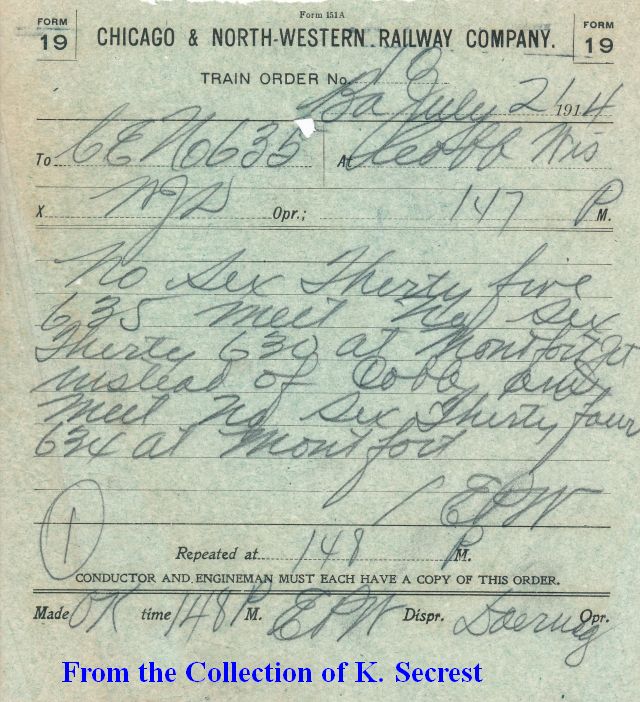 Form 151A
FORM 19
FORM 19
CHICAGO & NORTH-WESTERN RAILWAY COMPANY.
TRAIN ORDER No. 10
Ba July 21 1914
To C E No 635 At Cobb Wis
X Opr.; 147 P M.
No Six Thirty five
635 meet No Six
Thirty 630 at Montfort Jct
instead of Cobb and
meet No Six Thirty four
634 at Montfort
EPW
1
Repeated at 148 P M.
CONDUCTOR AND ENGINEMAN MUST EACH HAVE A COPY OF THIS ORDER.
Made OK time 148 P M. EPW Dispr. Doering Opr.
From the Collection of K. Secrest